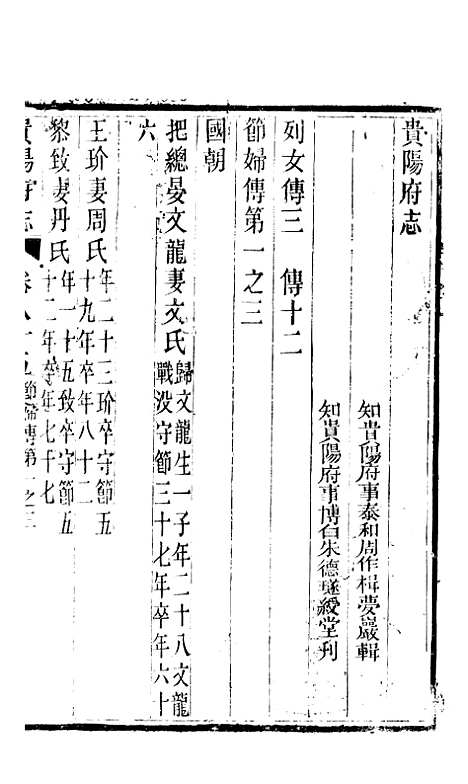 貴陽府志
知貴陽府事泰和周作楫夢巖輯
知貴陽府事博白朱德璲綬堂刊
列女傳三　傳十二
節婦傳第一之三
國朝
把總晏文龍妻文氏歸文龍生一子年二十八文龍
戰没守節三十七年卒年六十
六
王玠妻周氏年二十三玠卒守節五
十九年卒年八十二
黎致妻丹氏年二十五致卒守節五
十二年卒年七十七
貴陽府志
節婦傳第一之三